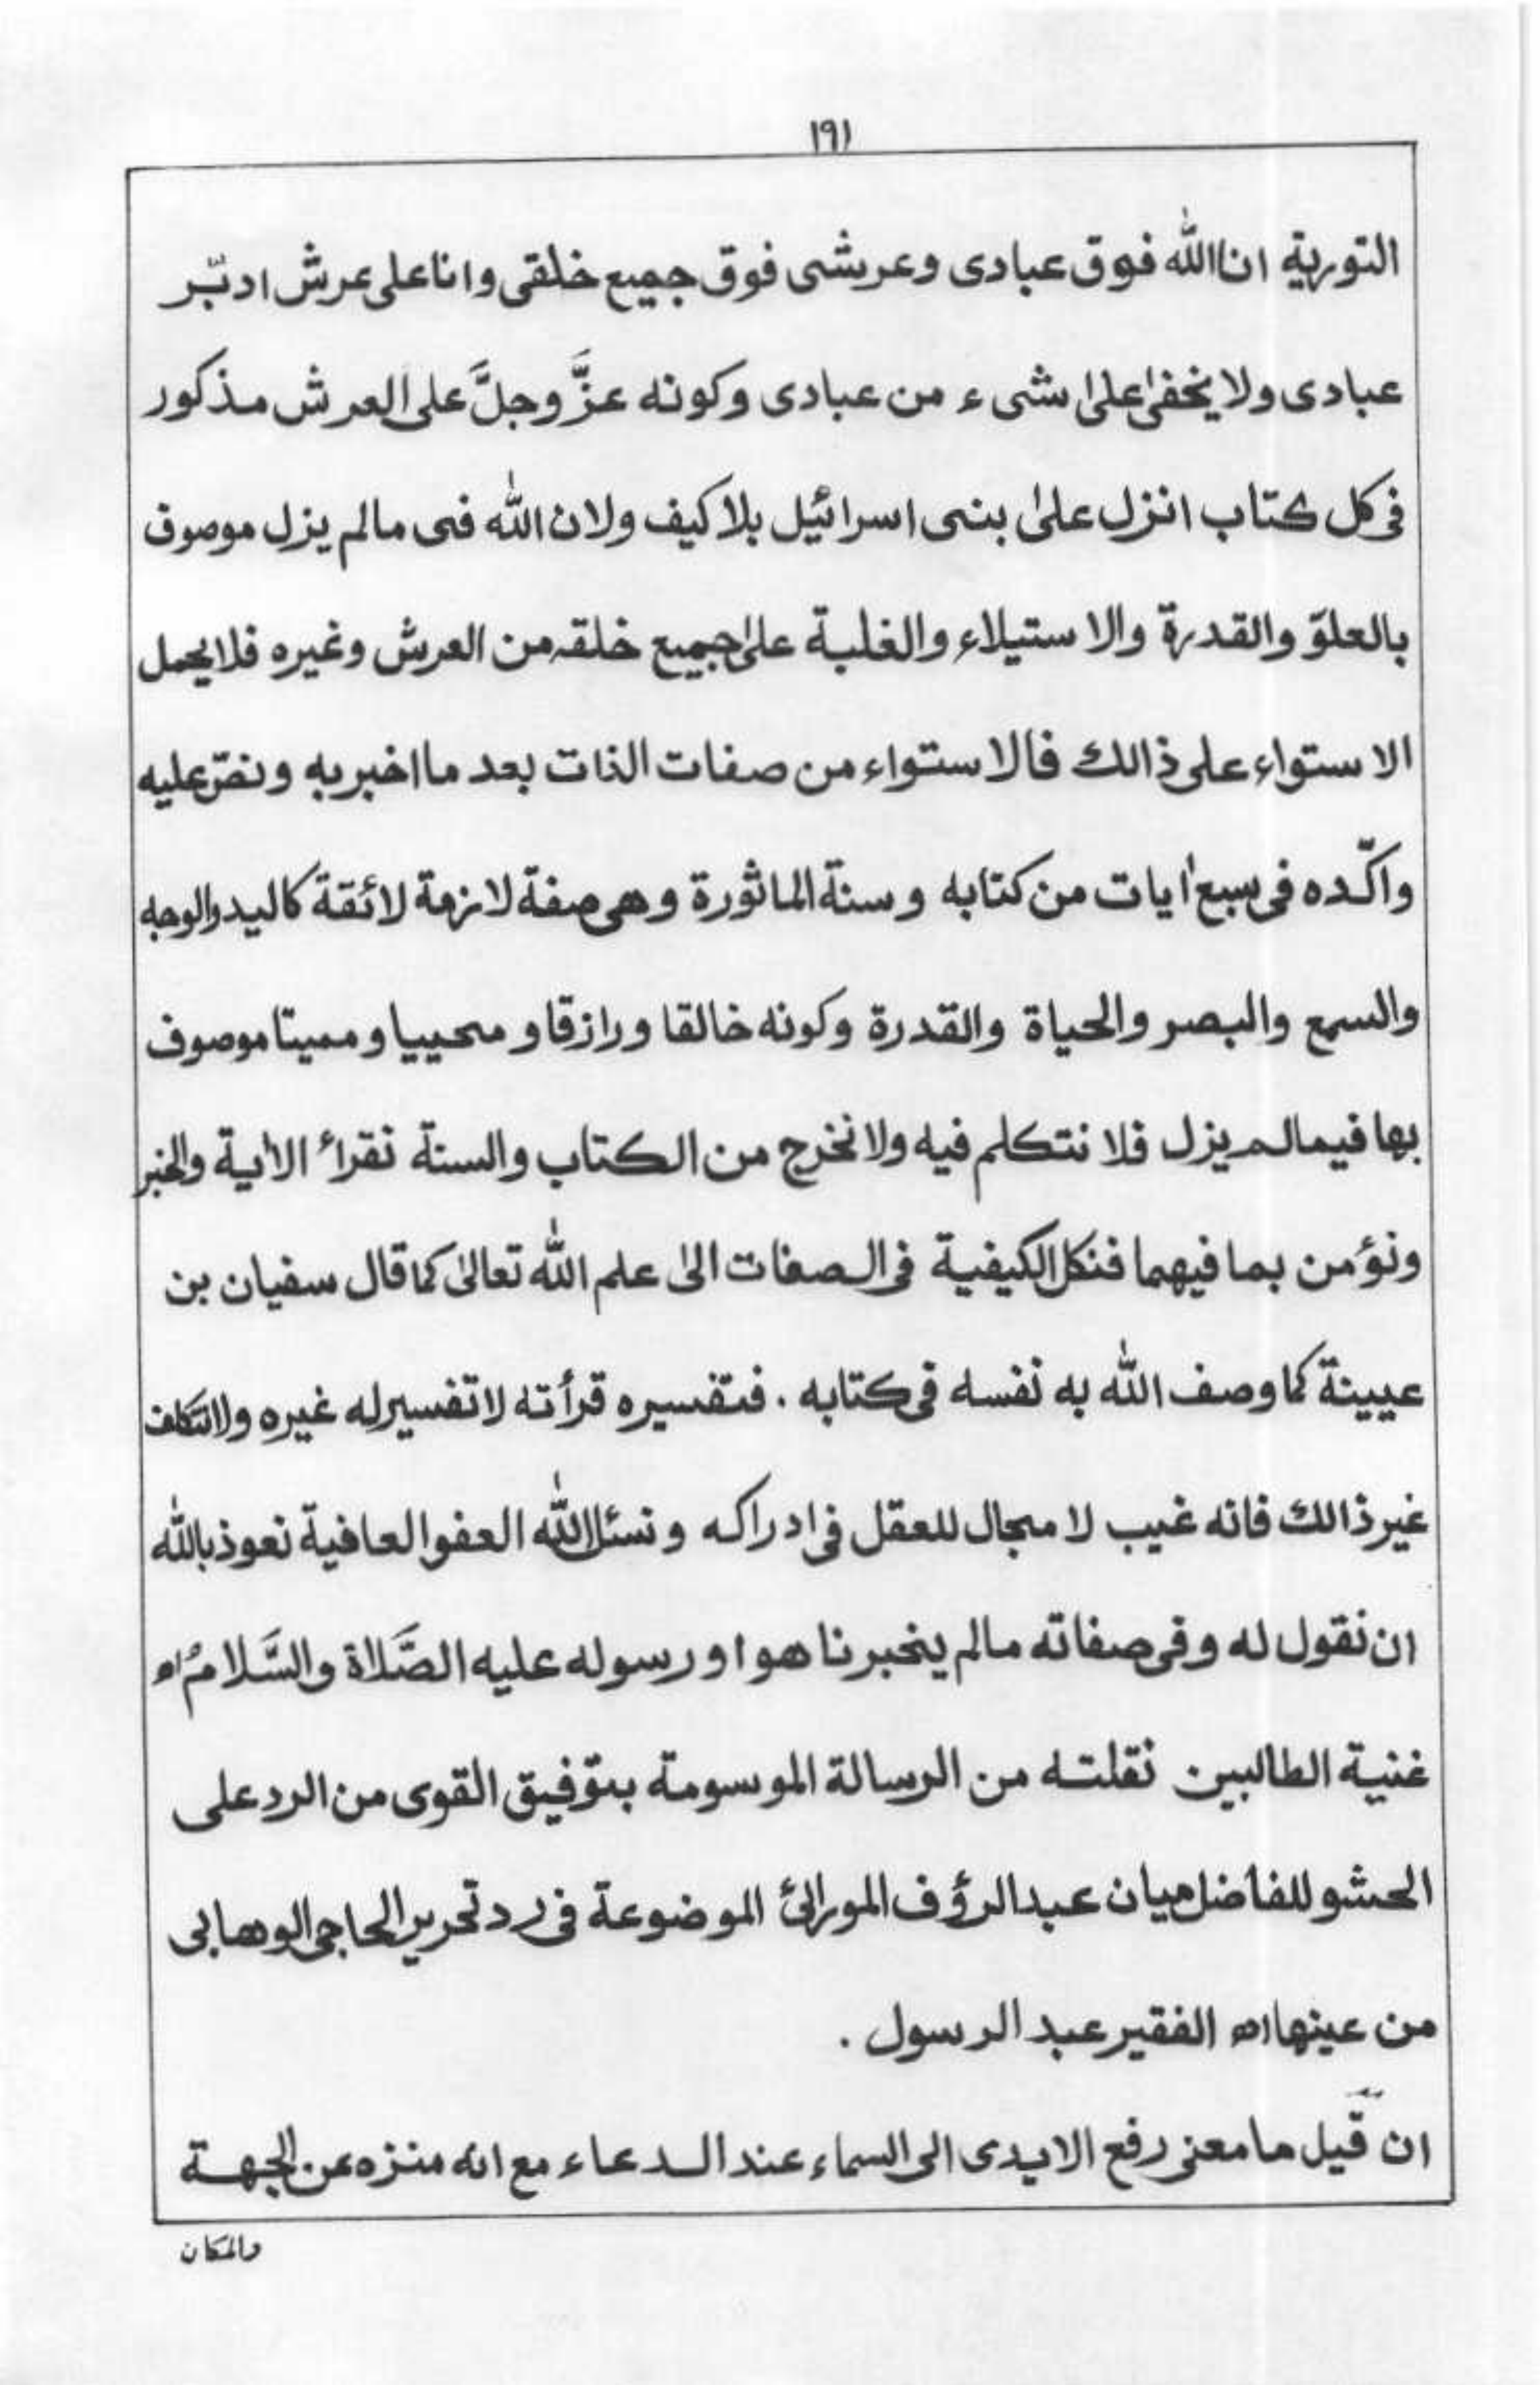 ١٩١
التورية انا الله فوق عبادى وعرشى فوق جميع خلقى وانا على عرش ادبّر
عبادى ولا يخفىٰ علىٰ شىء من عبادى وكونه عزَّ وجلَّ على العرش مذكور
فى كل كتاب انزل علىٰ بنى اسرائيل بلا كيف ولان الله فى مالم يزل موصوف
بالعلوّ والقدرة والاستيلاء والغلبة علىٰ جميع خلقه من العرش وغيره فلا يحمل
الاستواء على ذالك فالاستواء من صفات الذات بعد ما اخبر به ونصّ عليه
واكّده فى سبع اٰيات من كتابه وسنة الماثورة وهى صفة لازمة لائقة كاليد والوجه
والسمع والبصر والحياة والقدرة وكونه خالقا ورازقا و محييا و مميتا موصوف
بها فيما لم يزل فلا نتكلم فيه ولا نخرج من الكتاب والسنة نقراء الاٰية والخبر
ونؤمن بما فيهما فنكل الكيفية فى الصفات الىٰ علم الله تعالىٰ كما قال سفيان بن
عيينة كما وصف الله به نفسه فى كتابه . فتفسيره قرأته لا تفسير له غيره ولا نتكلف
غير ذالك فانه غيب لا مجال للعقل فى ادراكه ونسئل الله العفو العافية نعوذ بالله
ان نقول له وفى صفاته مالم يخبرنا هو او رسوله عليه الصَّلاة والسَّلامُ اه
غنية الطالبين نقلته من الرسالة الموسومة بتوفيق القوى من الرد على
الحشو للفاضل ميان عبد الرؤف المورائى الموضوعة فى رد تحرير الحاجى الوهابى
من عينها اه الفقير عبد الرسول .
ان قيل ما معنى رفع الايدى الى السماء عند الدعاء مع انه منزه عن الجهة
والمكان